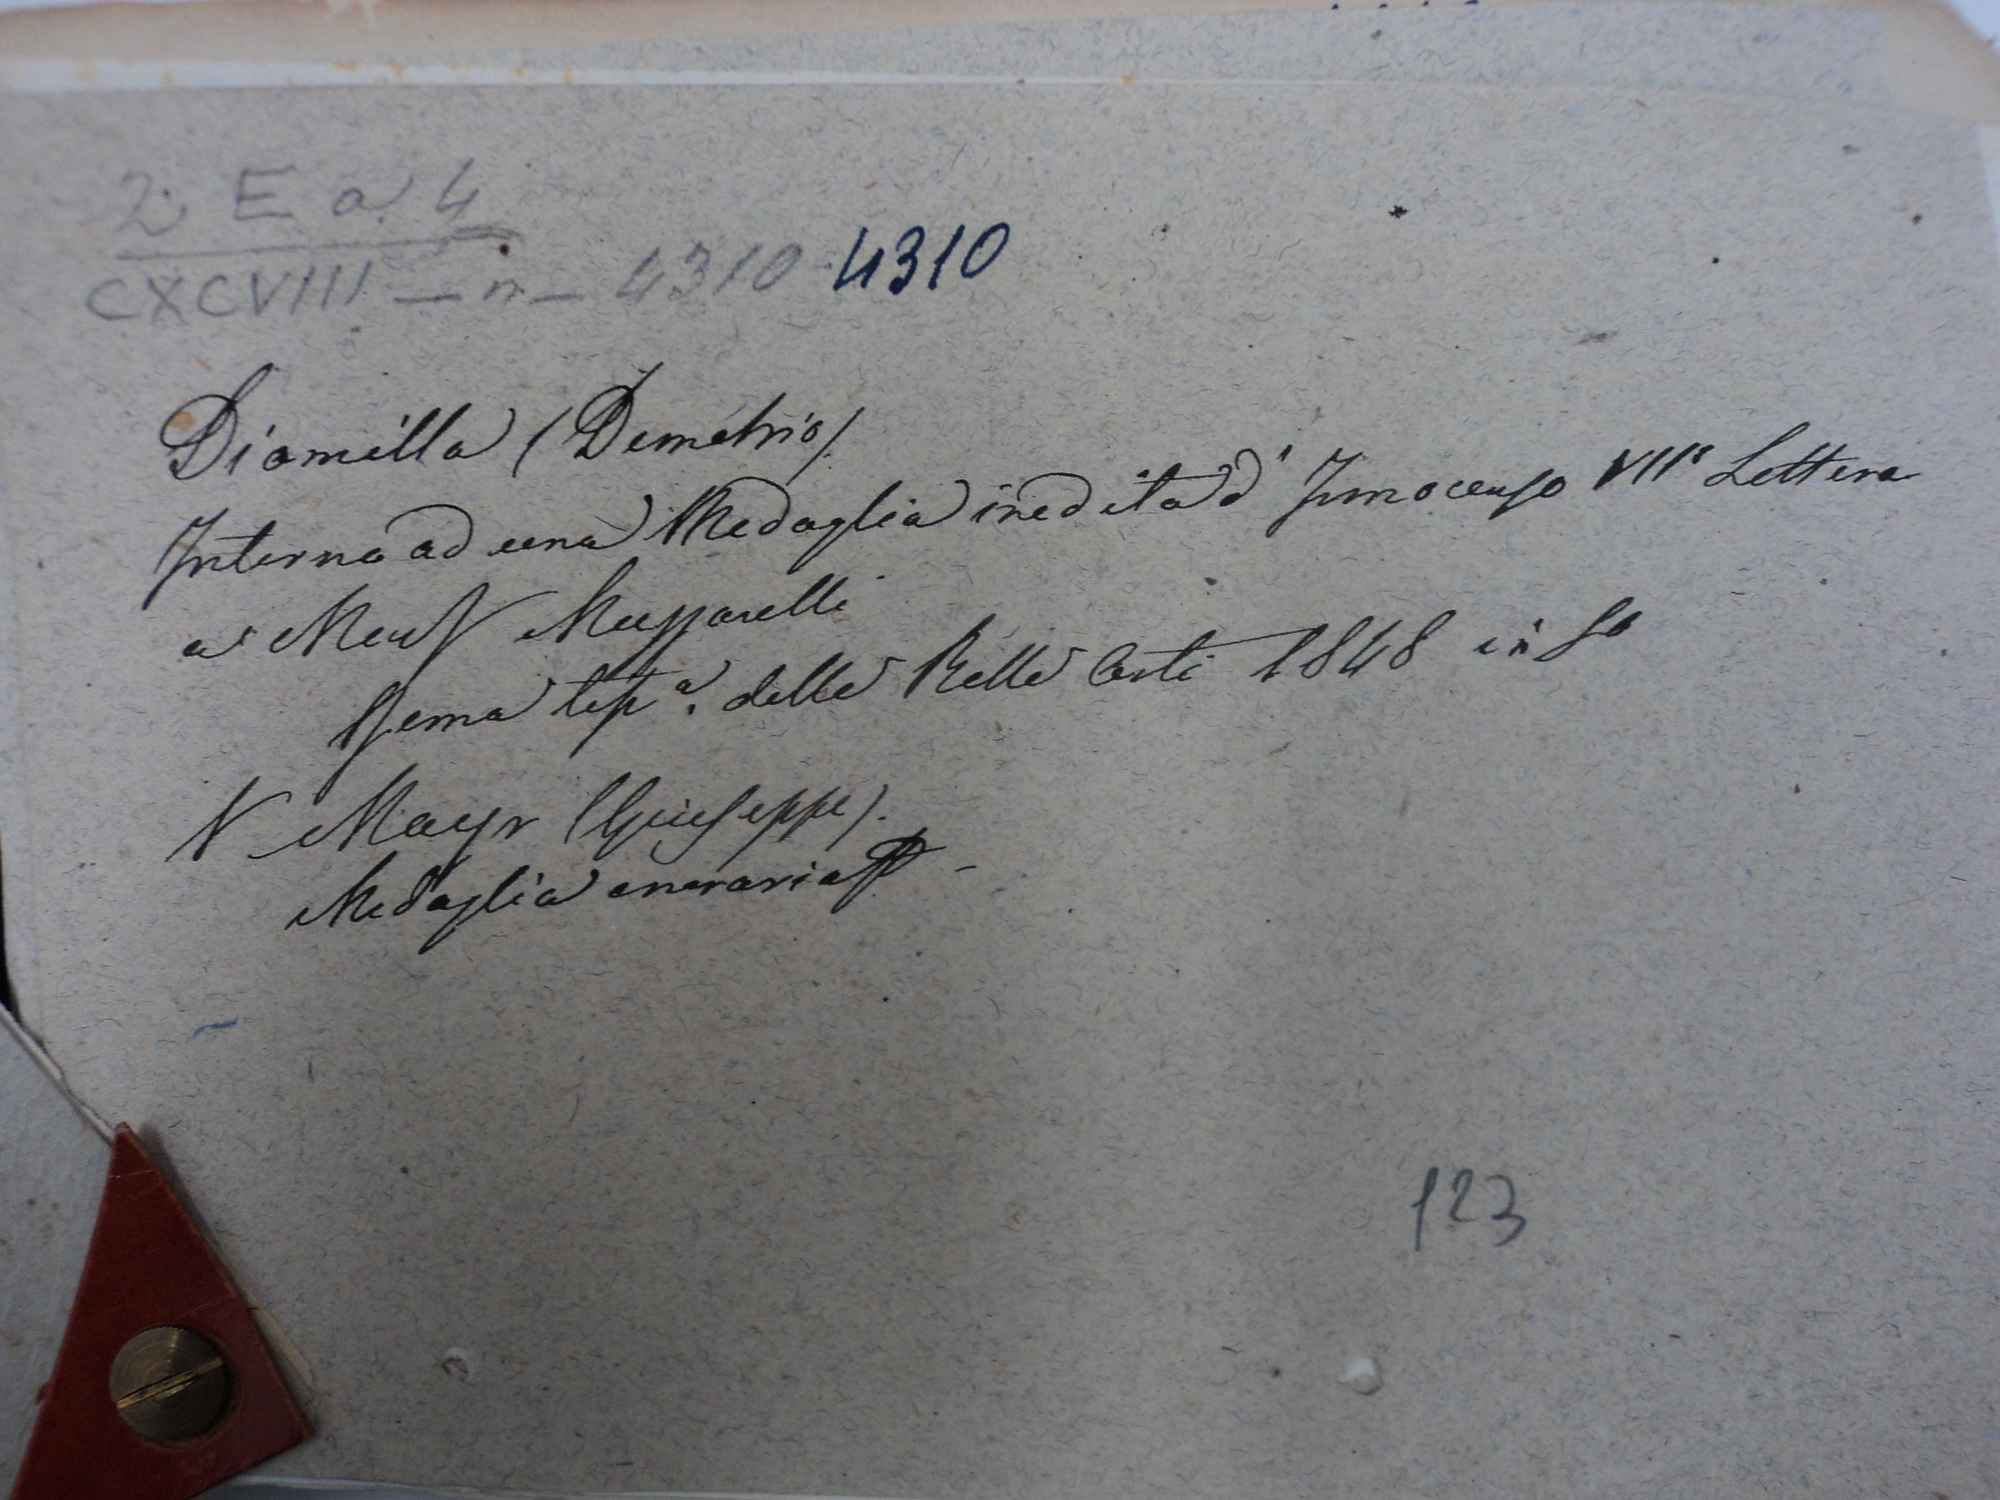 2. E a. 4
CXCVIII — n — 4310 4310
Diamilla (Demetrio)
Interno ad una Medaglia inedita d' Innocenzo VII° Lettera
a Muzzarelli
Roma tipa. delle Belle Arti 1848 in 8°
V Mayr (Giuseppe).
Medaglia onoraria
123